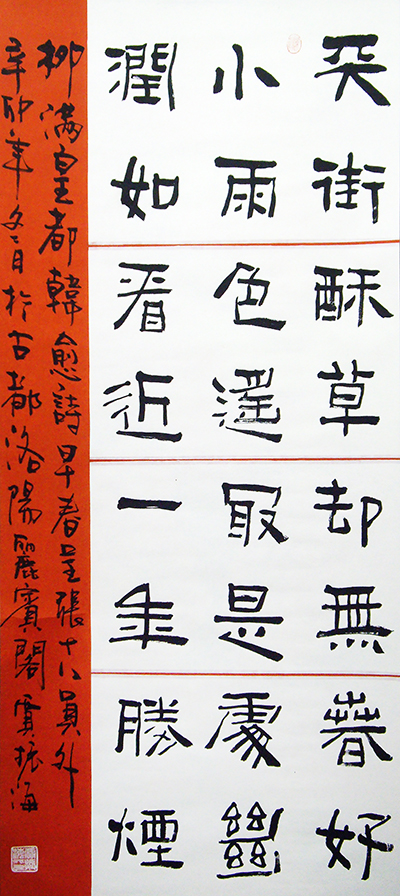 天街
小雨
潤如
酥草
色遙
看近
却無
最是
一年
春好
處絕
勝煙
柳滿皇都韓愈詩早春呈張十八員外
辛卯年冬月於古都洛陽麗賓閣賈振海